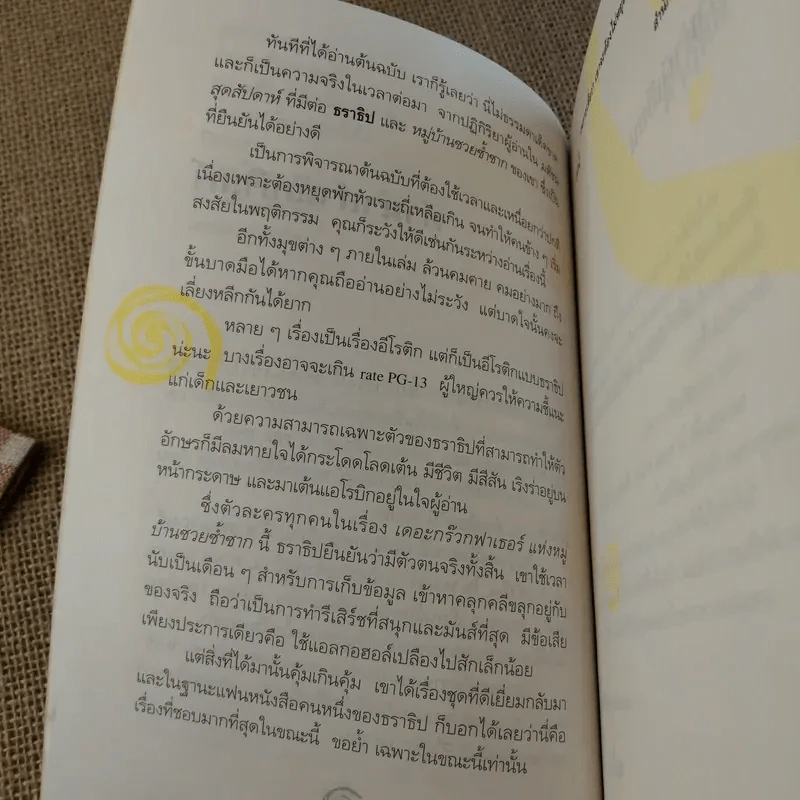 ทันทีที่ได้อ่านต้นฉบับ เราก็รู้เลยว่า นี่ไม่ธรรมดาเด็ดขาด
และก็เป็นความจริงในเวลาต่อมา จากปฏิกิริยาผู้อ่านใน มติชน
สุดสัปดาห์ ที่มีต่อ ธราธิป และ หมู่บ้านซวยซ้ำซาก ของเขา
ที่ยืนยันได้อย่างดี
เป็นการพิจารณาต้นฉบับที่ต้องใช้เวลาและเหนื่อยกว่าปกติ
เนื่องเพราะต้องหยุดพักหัวเราะถี่เหลือเกิน จนทำให้คนข้าง ๆ เริ่ม
สงสัยในพฤติกรรม คุณก็ระวังให้ดีเช่นกันระหว่างอ่านเรื่องนี้
อีกทั้งมุขต่าง ๆ ภายในเล่ม ล้วนคมคาย คมอย่างมาก ถึง
ขั้นบาดมือได้หากคุณถืออ่านอย่างไม่ระวัง แต่บาดใจนั้นคงจะ
เลี่ยงหลีกกันได้ยาก
หลาย ๆ เรื่องเป็นเรื่องอีโรติก แต่ก็เป็นอีโรติกแบบธราธิป
น่ะนะ บางเรื่องอาจจะเกิน rate PG-13 ผู้ใหญ่ควรให้ความชี้แนะ
แก่เด็กและเยาวชน
ด้วยความสามารถเฉพาะตัวของธราธิปที่สามารถทำให้ตัว
อักษรก็มีลมหายใจได้กระโดดโลดเต้น มีชีวิต มีสีสัน เริงร่าอยู่บน
หน้ากระดาษ และมาเต้นแอโรบิกอยู่ในใจผู้อ่าน
ซึ่งตัวละครทุกคนในเรื่อง เดอะกร๊วกฟาเธอร์ แห่งหมู่
บ้านซวยซ้ำซาก นี้ ธราธิปยืนยันว่ามีตัวตนจริงทั้งสิ้น เขาใช้เวลา
นับเป็นเดือน ๆ สำหรับการเก็บข้อมูล เข้าหาคลุกคลีขลุกอยู่กับ
ของจริง ถือว่าเป็นการทำรีเสิร์ซที่สนุกและมันส์ที่สุด มีข้อเสีย
เพียงประการเดียวคือ ใช้แอลกอฮอล์เปลืองไปสักเล็กน้อย
แต่สิ่งที่ได้มานั้นคุ้มเกินคุ้ม เขาได้เรื่องชุดที่ดีเยี่ยมกลับมา
และในฐานะแฟนหนังสือคนหนึ่งของธราธิป ก็บอกได้เลยว่านี่คือ
เรื่องที่ชอบมากที่สุดในขณะนี้ ขอย้ำ เฉพาะในขณะนี้เท่านั้น